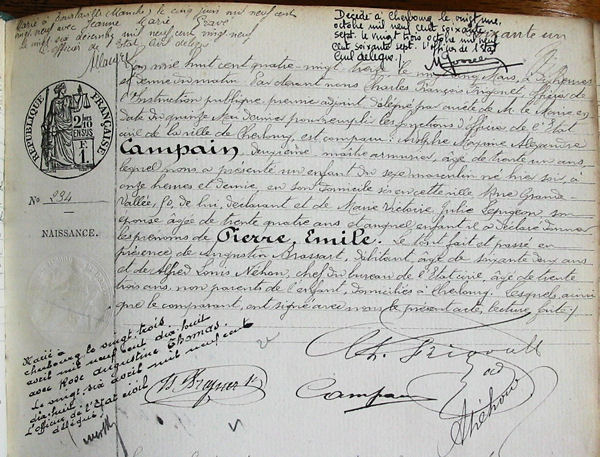 Marié à Sourdeval (Manche) le cinq juin mil neuf cent
mil neuf avec Jeanne Marie
le vingt six décembre mil neuf cent neuf
L'officier de l'Etat Civil délégué
Décédé à Cherbourg le vingt une
octobre mil neuf cent soixante
sept. le vingt trois octobre mil neuf
cent soixante sept. l'officier de l'Etat
Civil délégué !
soixante un
RÉPUBLIQUE FRANÇAISE
2/10 EN SUS
F 1
No 294
NAISSANCE.
L'an mil huit cent quatre-vingt treize, le Mars, à dix heures
et demie du matin. Par devant nous Charles François Frigoult, officier de
l'Instruction publique, premier adjoint délégué par arrêté de M. le Maire en
date du quinze Mai dernier pour remplir les fonctions d'Officier de l'Etat
civil de la ville de Cherbourg, est comparu : Adolphe Maxime Alexandre
Campain, deuxième maître armurier, âgé de trente un ans,
lequel nous a présenté un enfant du sexe masculin né hier soir, à
onze heures et demie, en son domicile sis en cette ville Rue Grande
Vallée, 50, de lui, déclarant et de Marie Victoire Julie Lepigeon, son
épouse âgée de trente quatre ans, et auquel enfant il a déclaré donner
les prénoms de Pierre, Emile. Le tout fait et passé en
présence de Augustin Brassart, débitant, âgé de soixante deux ans
et de Alfred Louis Néhou, chef du bureau de l'Etat civil, âgé de trente
trois ans, non parents de l'enfant, domiciliés à Cherbourg, lesquels ainsi
que le comparant, ont signé avec nous le présent acte, lecture faite./.
Marié à
Cherbourg le vingt trois
avril mil neuf cent dix huit
avec Rose Augustine Thomas.
Le vingt six avril mil neuf cent
dix huit.
L'officier de l'Etat civil
délégué
Ch. Frigoult
Campain
A Néhou